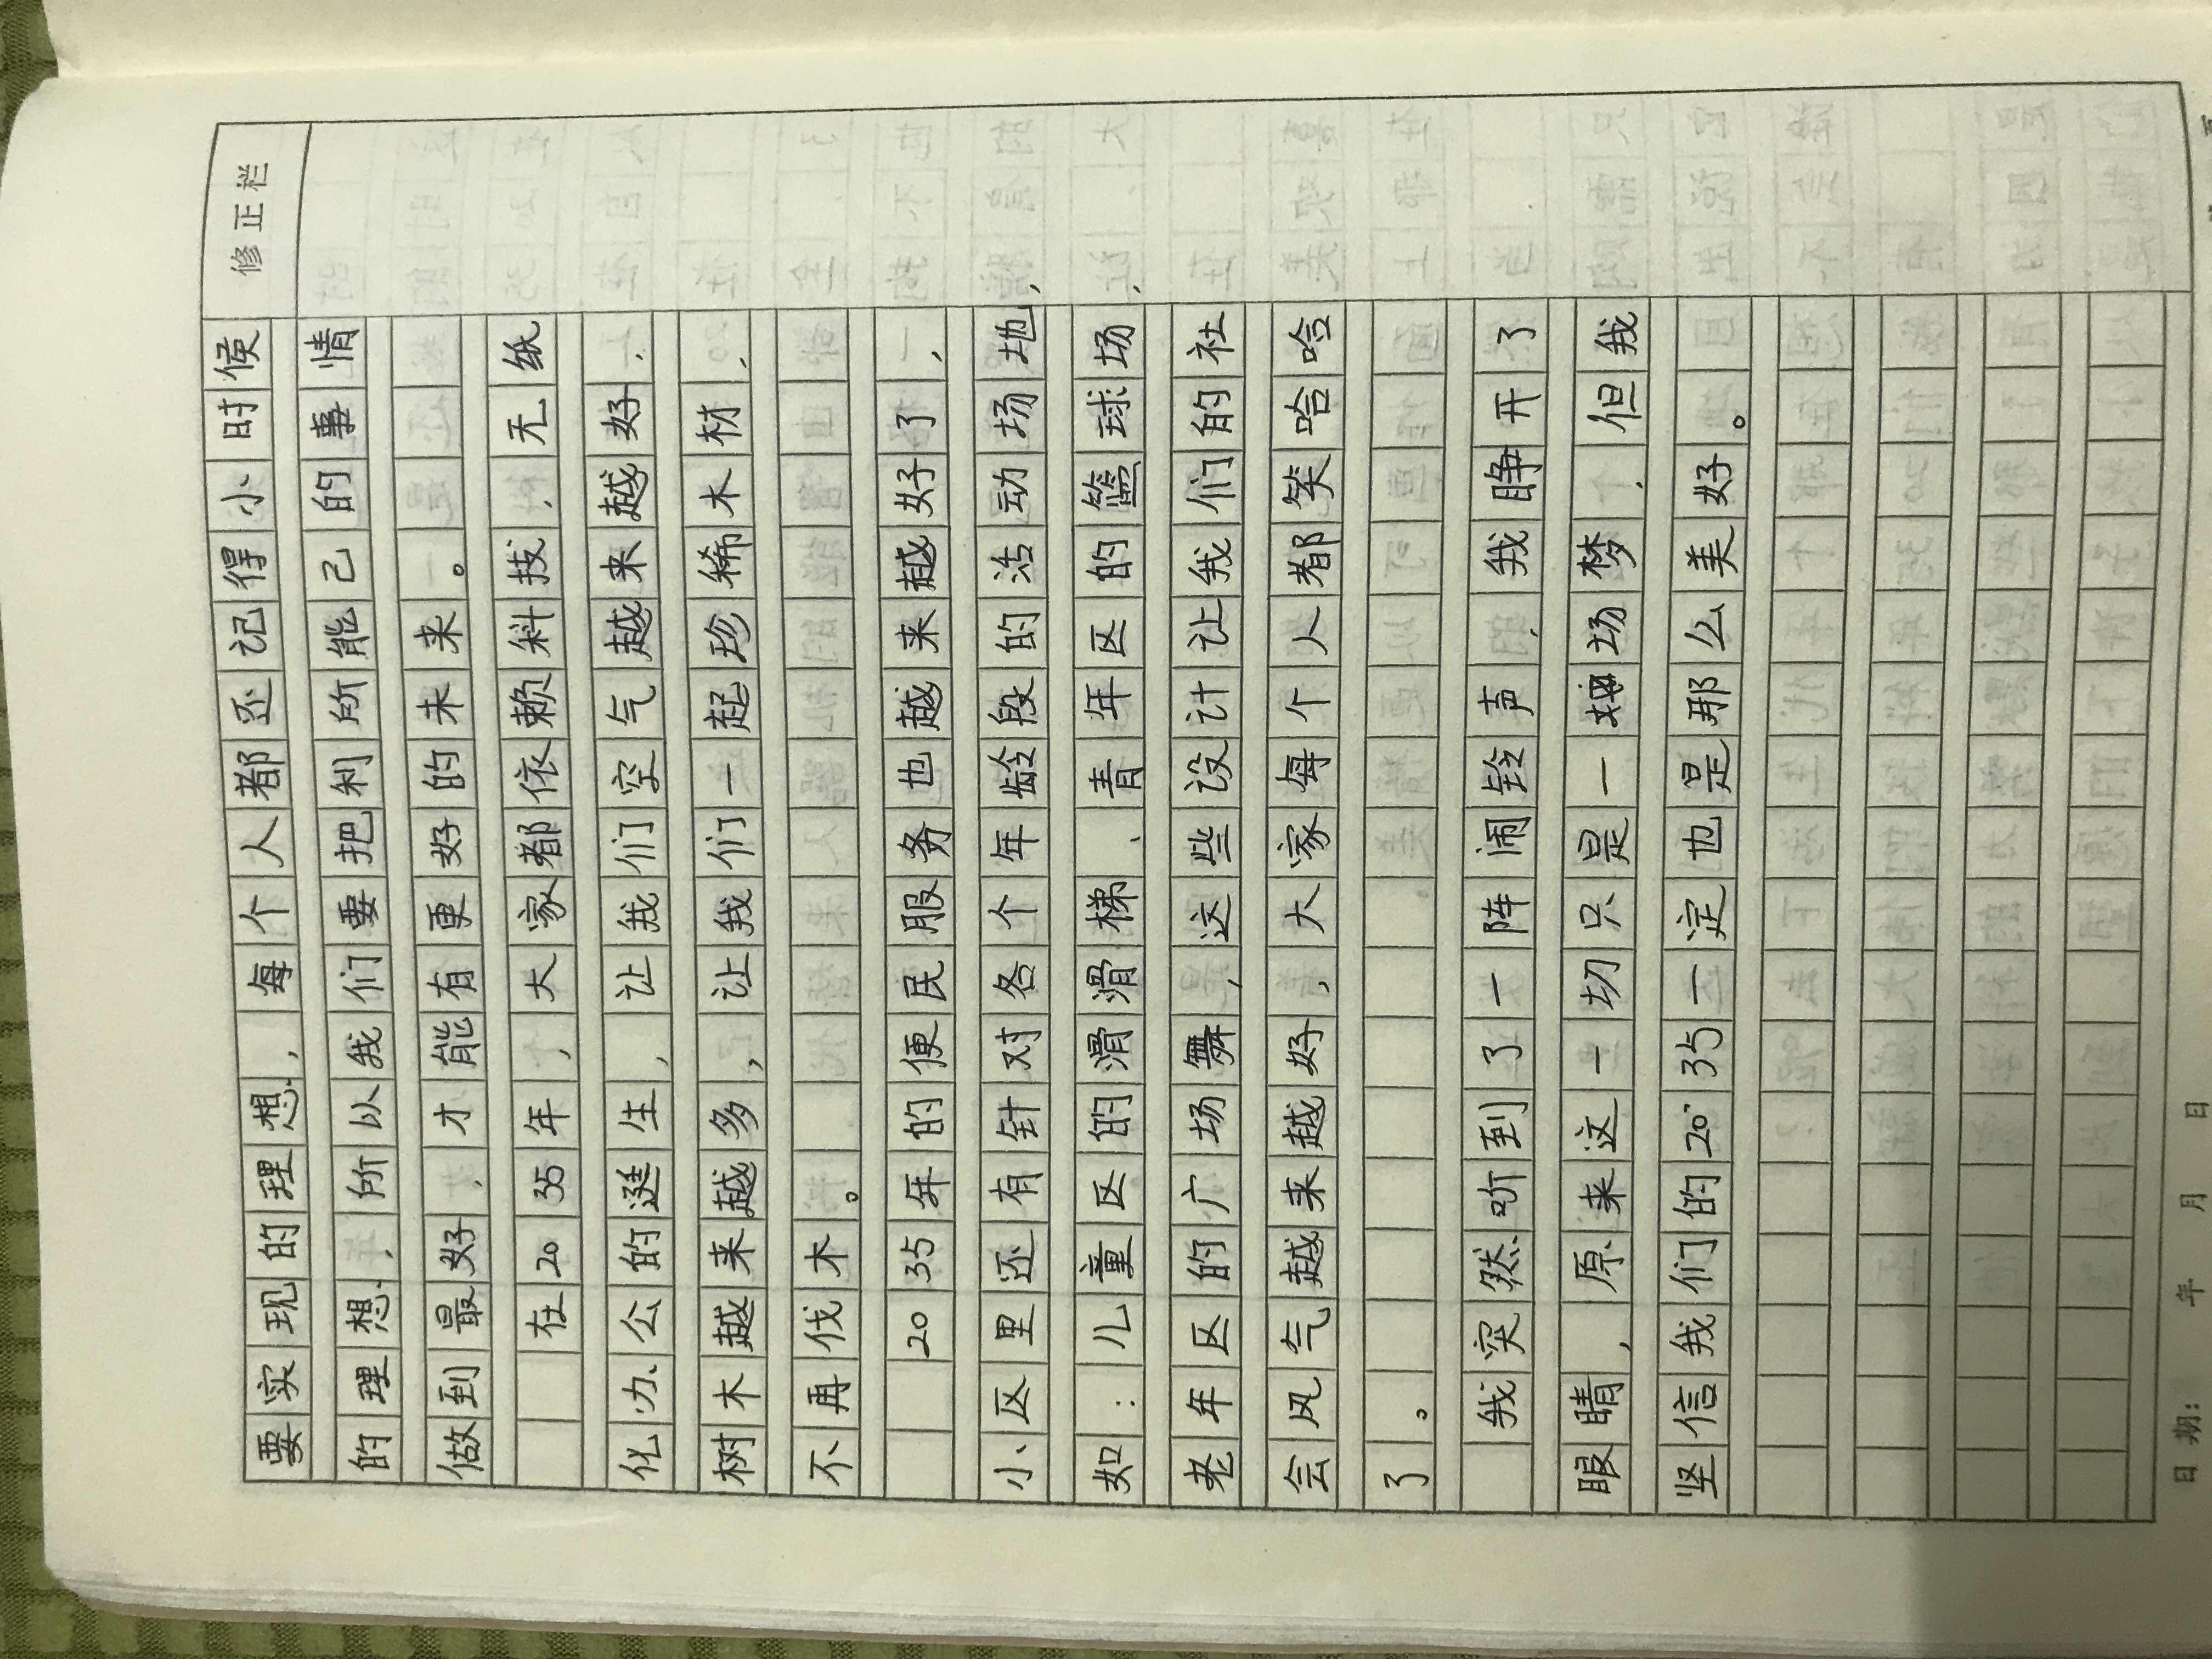 修正栏
要实现的理想，每个人都还记得小时候
的理想，所以我们要把利所能己的事情
做到最好，才能有更好的未来。
在2035年，大家都依赖科技，无纸
化办公的诞生，让我们空气越来越好，
树木越来越多，让我们一起珍稀木材，
不再伐木。
2035年的便民服务也越来越好了，
小区里还有针对各个年龄段的活动场地，
如：儿童区的滑滑梯、青年区的篮球场，
老年区的广场舞，这些设计让我们的社
会风气越来越好，大家每个人都笑哈哈
了。
我突然听到了一阵闹铃声，我睁开了
眼睛，原来这一切只是一场梦，但我
坚信我们的2035一定也是那么美好。
日期： 年 月 日